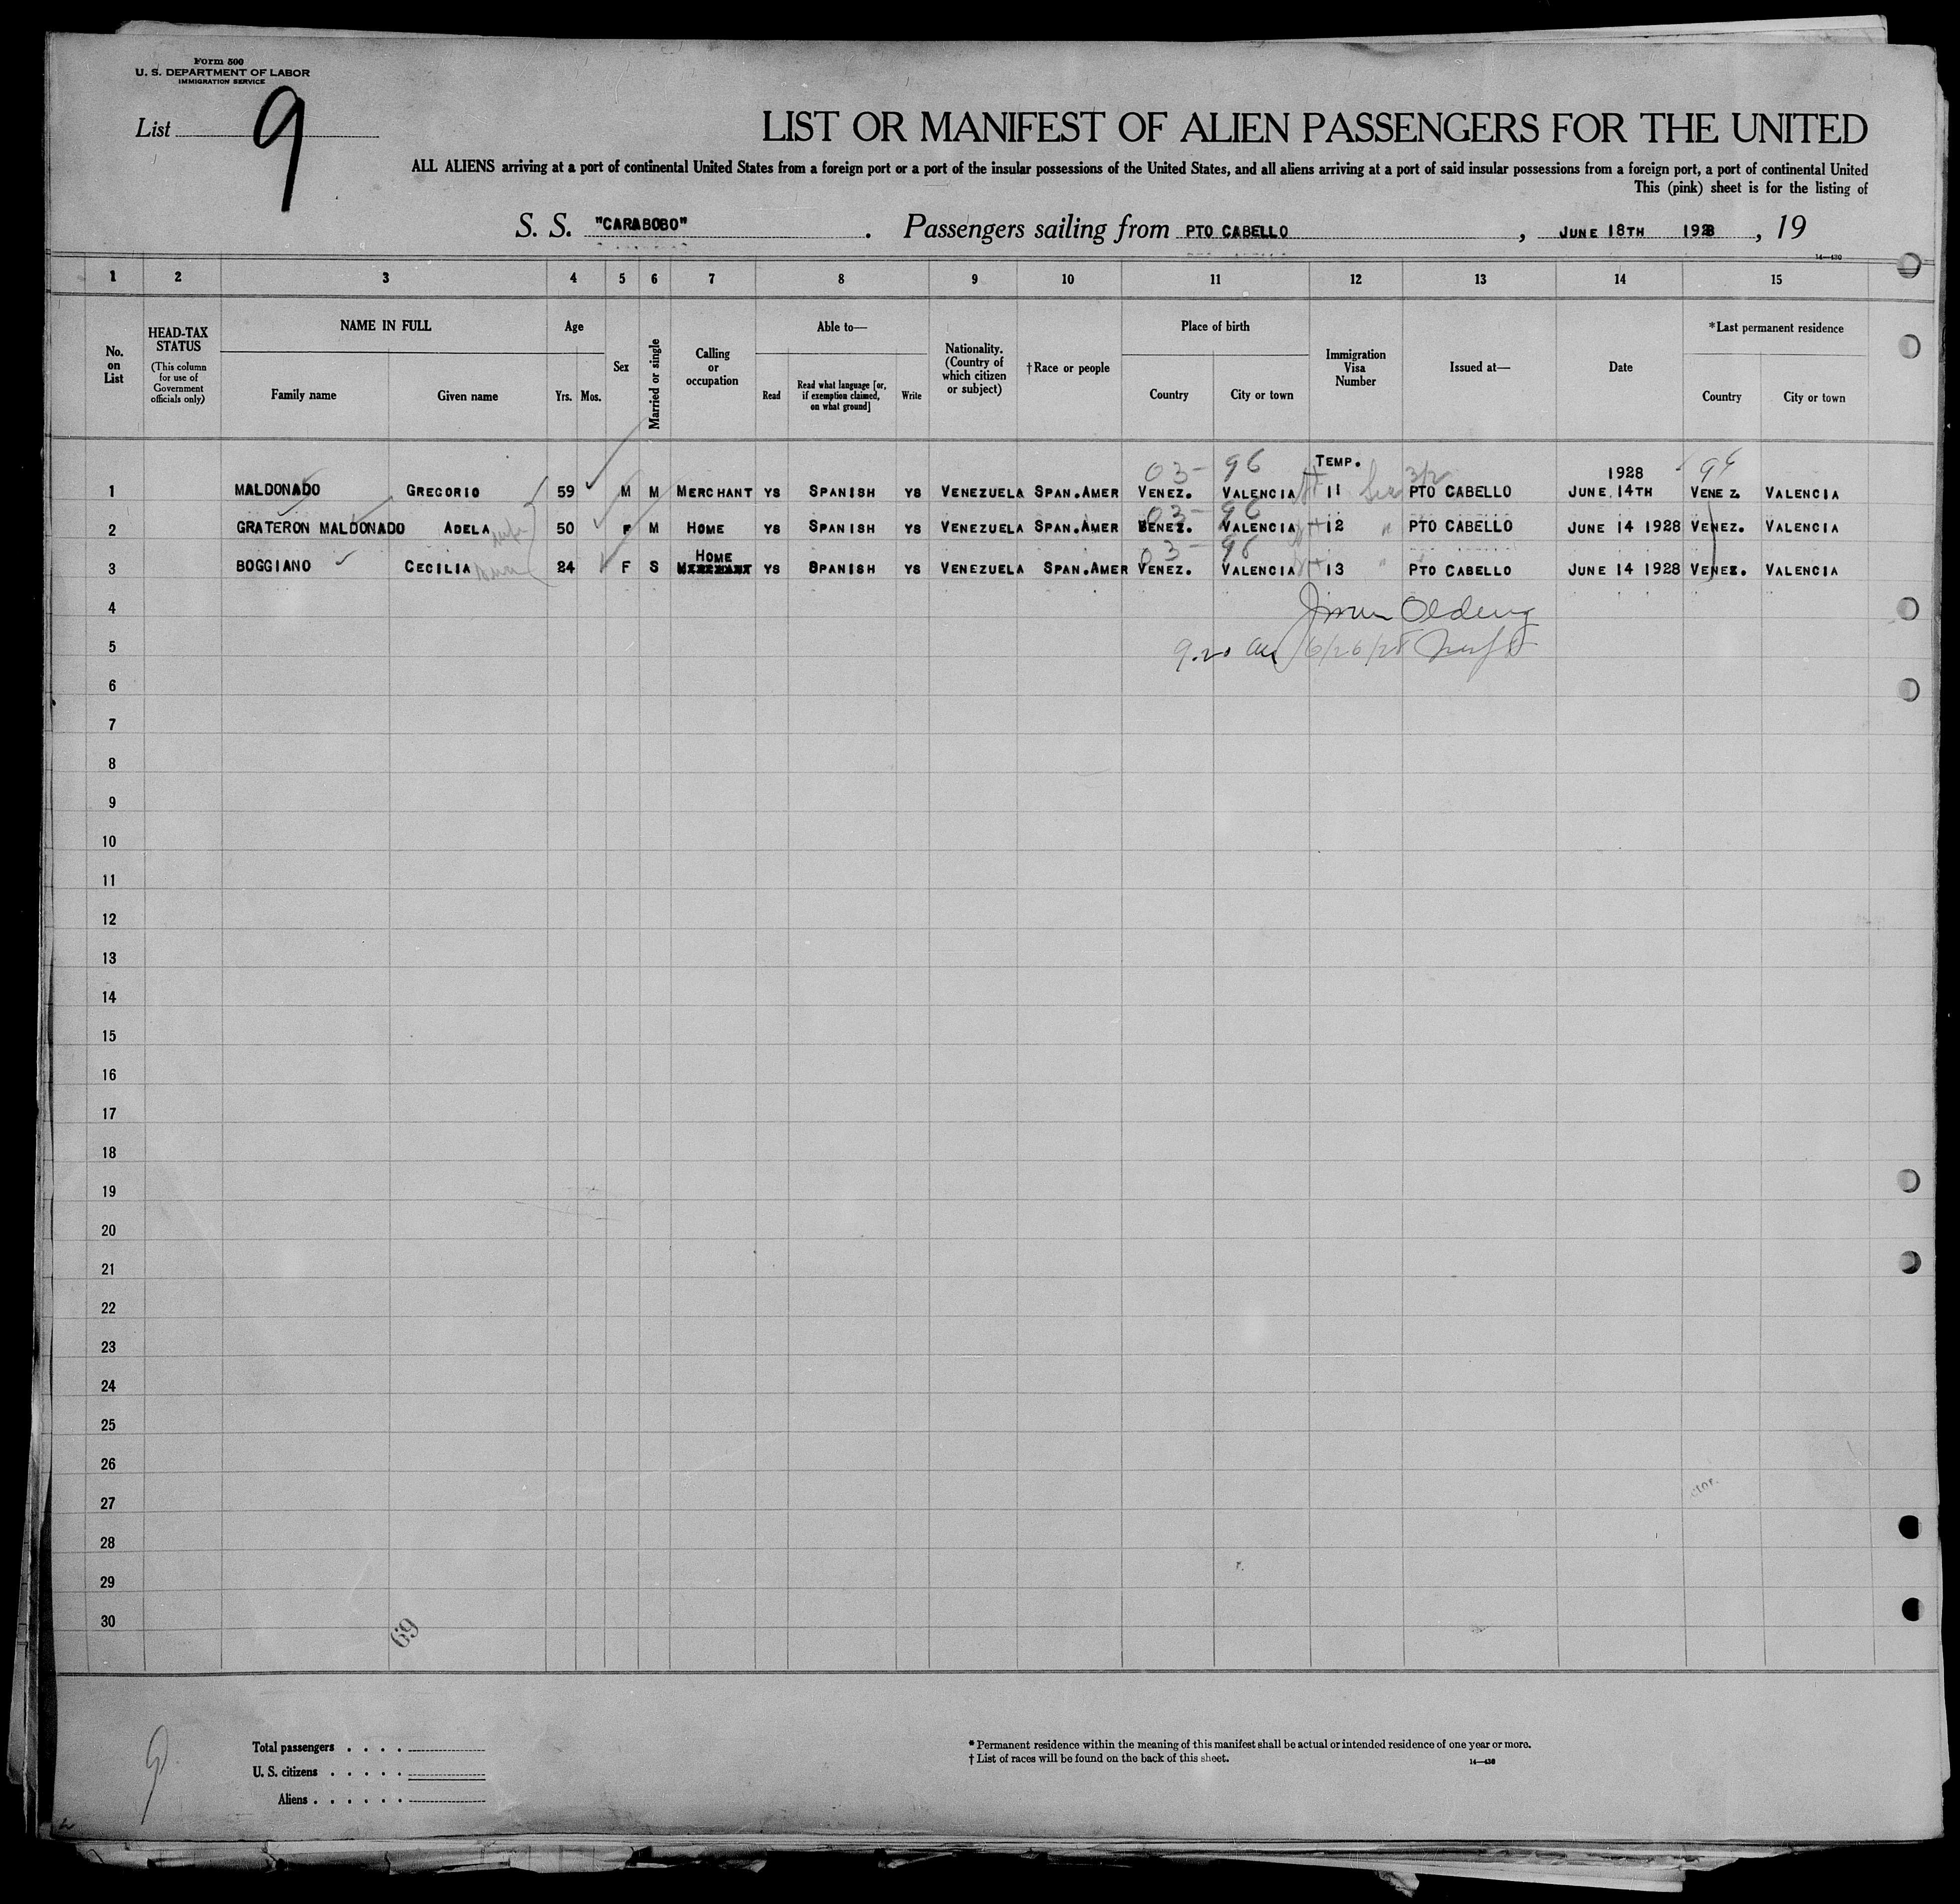 Form 500
U. S. DEPARTMENT OF LABOR
IMMIGRATION SERVICE
List 9
LIST OR MANIFEST OF ALIEN PASSENGERS FOR THE UNITED
ALL ALIENS arriving at a port of continental United States from a foreign port or a port of the insular possessions of the United States, and all aliens arriving at a port of said insular possessions from a foreign port, a port of continental United
This (pink) sheet is for the listing of
S. S. "CARABOBO" . Passengers sailing from PTO CABELLO , JUNE 18TH 1928 , 19
14—430
1 2 3 4 5 6 7 8 9 10 11 12 13 14 15
No. on List
HEAD-TAX STATUS
(This column for use of Government officials only)
NAME IN FULL
Family name Given name
Age
Yrs. Mos.
Sex
Married or single
Calling or occupation
Able to—
Read
Read what language [or, if exemption claimed, on what ground]
Write
Nationality. (Country of which citizen or subject)
†Race or people
Place of birth
Country City or town
Immigration Visa Number
Issued at—
Date
*Last permanent residence
Country City or town
03- 96 TEMP. 3/2 1928 96
1 MALDONADO GREGORIO 59 M M MERCHANT YS SPANISH YS VENEZUELA SPAN.AMER VENEZ. VALENCIA 11 PTO CABELLO JUNE 14TH VENEZ. VALENCIA
03- 96
2 GRATERON MALDONADO ADELA wife 50 F M HOME YS SPANISH YS VENEZUELA SPAN.AMER VENEZ. VALENCIA 12 " PTO CABELLO JUNE 14 1928 VENEZ. VALENCIA
HOME 03- 96
3 BOGGIANO CECILIA 24 F S MERCHANT YS SPANISH YS VENEZUELA SPAN.AMER VENEZ. VALENCIA 13 " PTO CABELLO JUNE 14 1928 VENEZ. VALENCIA
4
5 9.20 am 6/26/28
6
7
8
9
10
11
12
13
14
15
16
17
18
19
20
21
22
23
24
25
26
27
28
29
30
69
9
Total passengers . . . .
U. S. citizens . . . . .
Aliens . . . . . .
* Permanent residence within the meaning of this manifest shall be actual or intended residence of one year or more.
† List of races will be found on the back of this sheet.
14—430